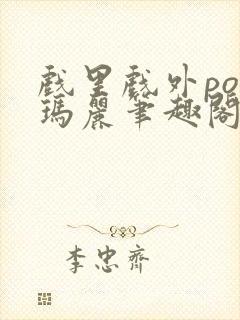 戲里戲外po
瑪麗筆趣閣
李忠齊